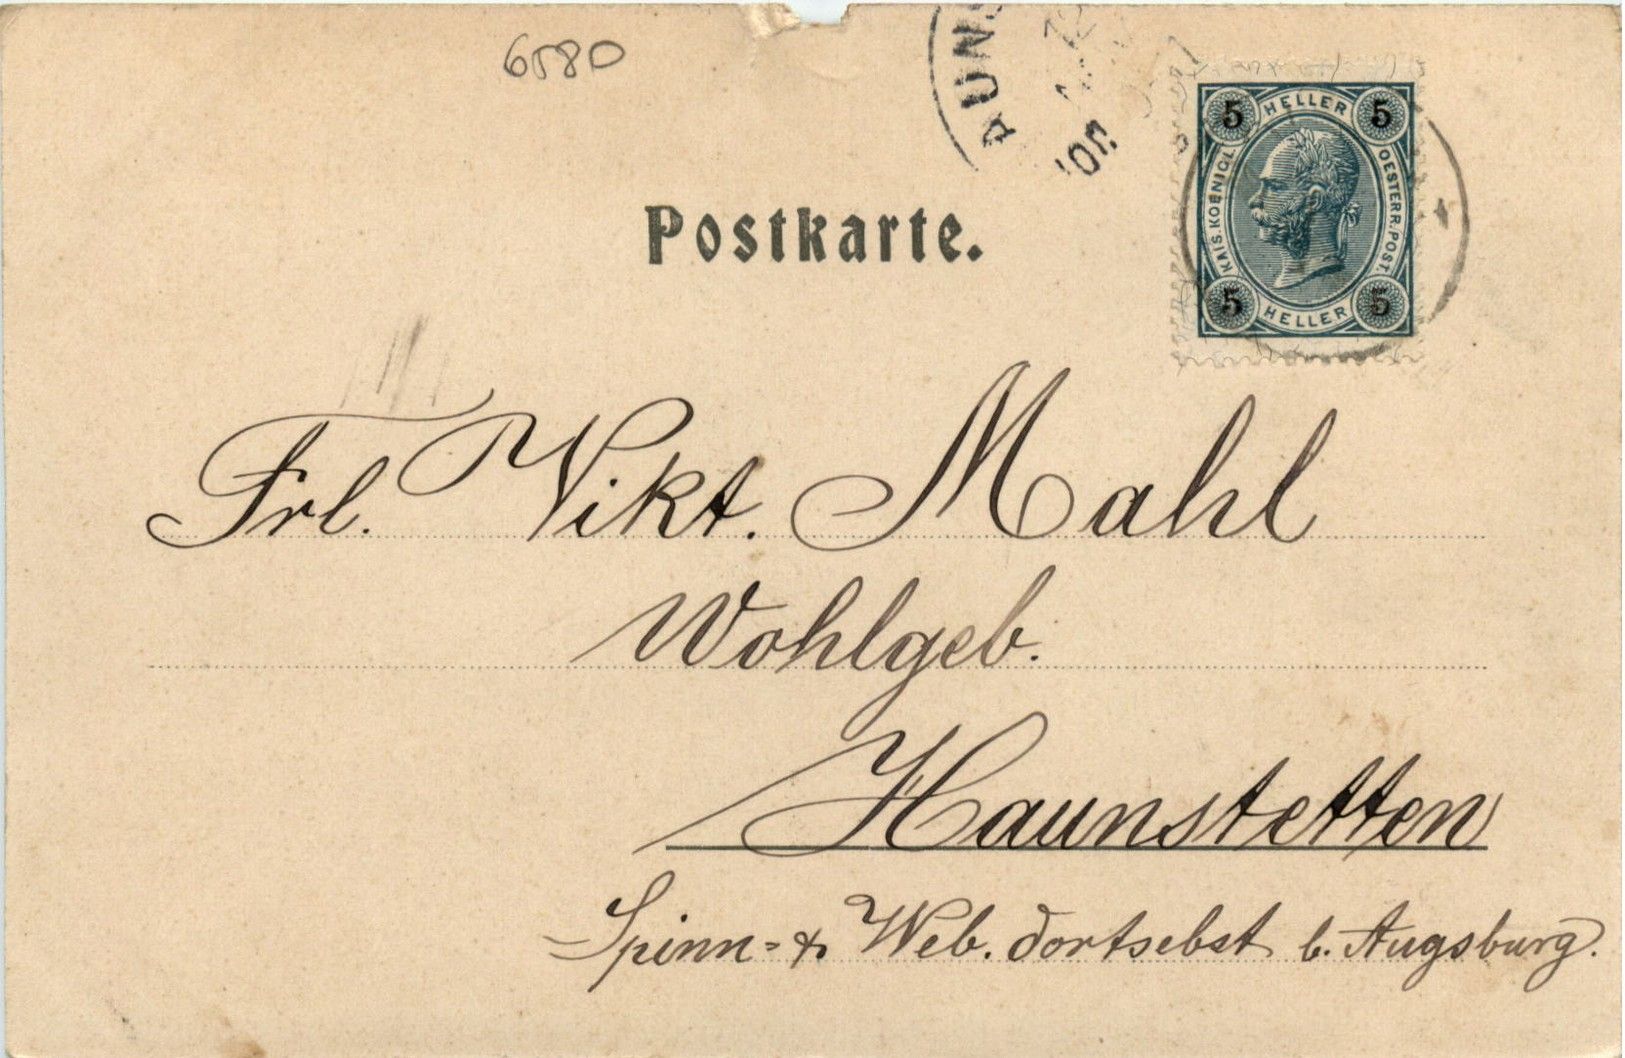 6580
AUNS
5 HELLER 5
KAIS. KOENIGL. OESTERR. POST.
5 HELLER 5
Postkarte.
Frl. Vikt. Mahl
Wohlgeb.
Haunstetten
Spinn- & Web. dortselbst b. Augsburg.